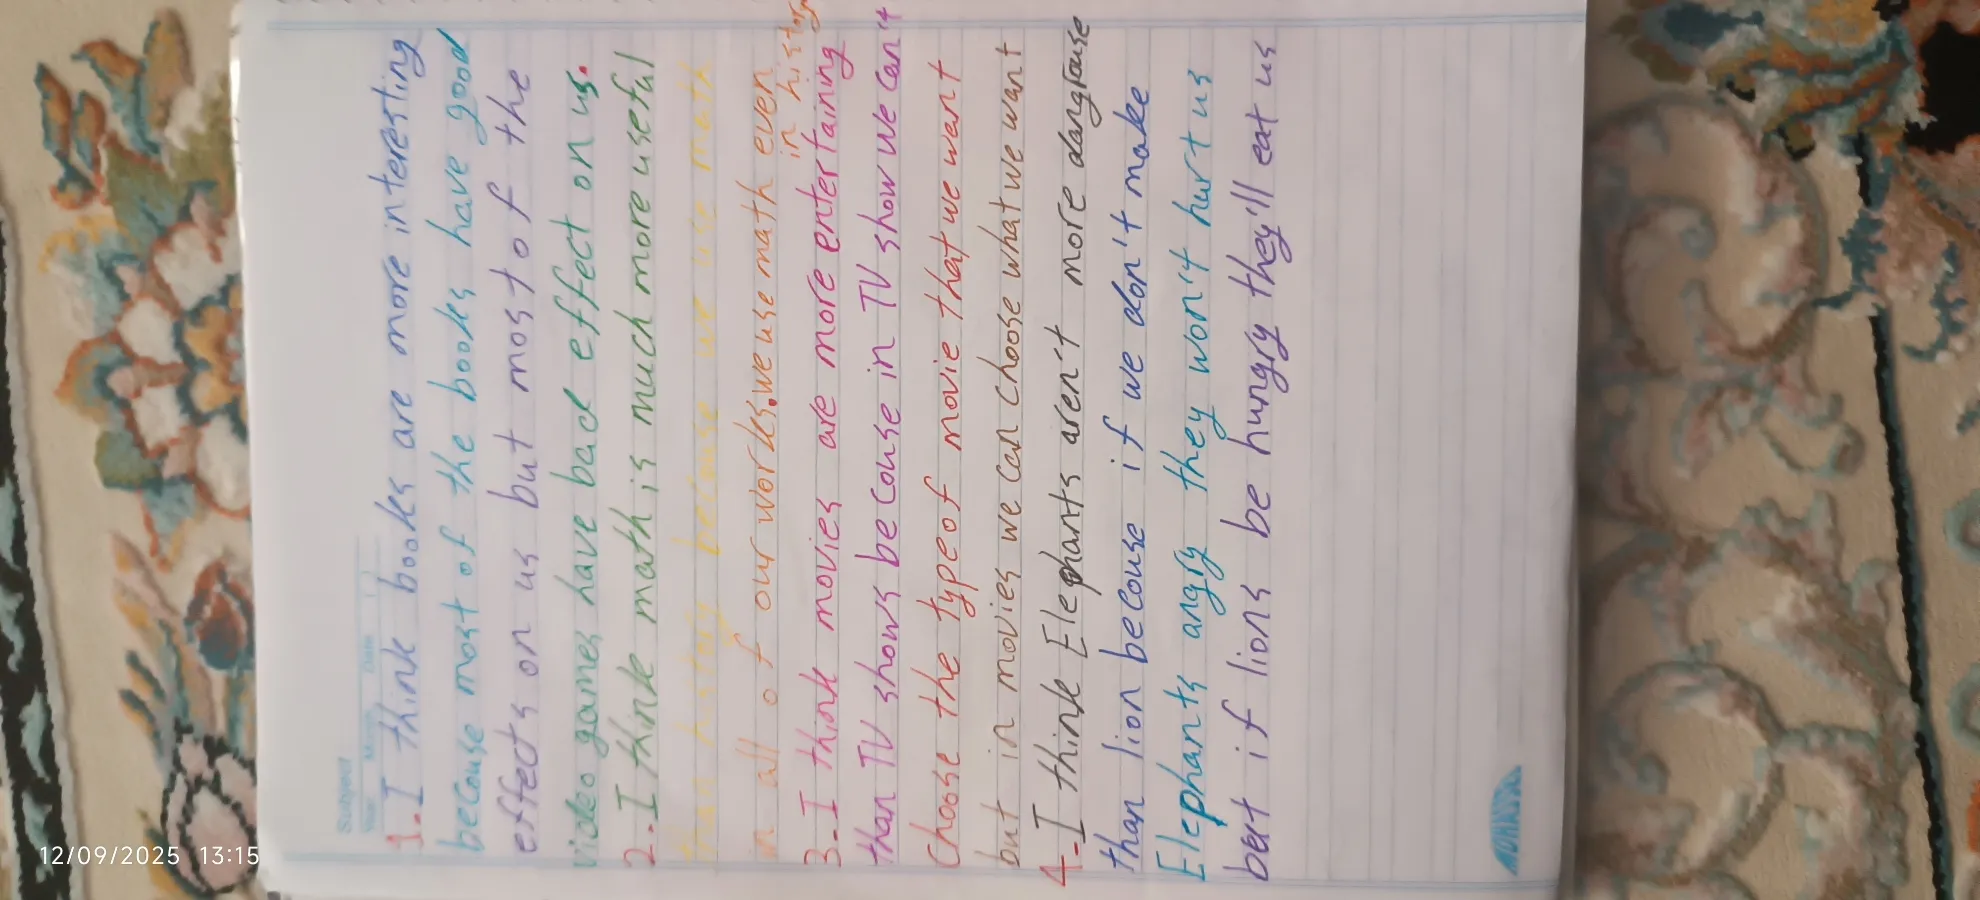 Subject
Year Month Date
1-I think books are more interesting
becouse most of the books have good
effects on us but most of the
video games have bad effect on us.
2-I think math is much more useful
than history becouse we use math
in all of our works. we use math even in history
3-I think movies are more entertaining
than TV shows becouse in TV show we can't
choose the type of movie that we want
but in movies we can choose what we want
4-I think Elephants aren't more dangrouse
than lion becouse if we don't make
Elephants angry they won't hurt us
but if lions be hungry they'll eat us
12/09/2025 13:15